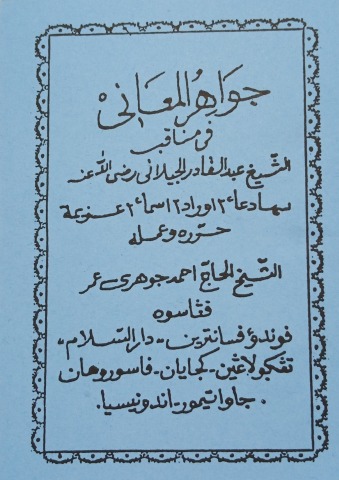 جواهر المعانى
فى مناقب
الشيخ عبد القادر الجيلانى رضى الله عنه
بهادعاء٢ اوراد٢ اسماء٢ عزيمة
حرره وعمله
الشيخ الحاج احمد جوهرى عمر
ڤڠاسوه
ڤوندوء ڤسانترين - دار السلام -
تڠكولاڠين - كجايان - ڤاسوروهان
جاوا تيمور - اندونيسيا.